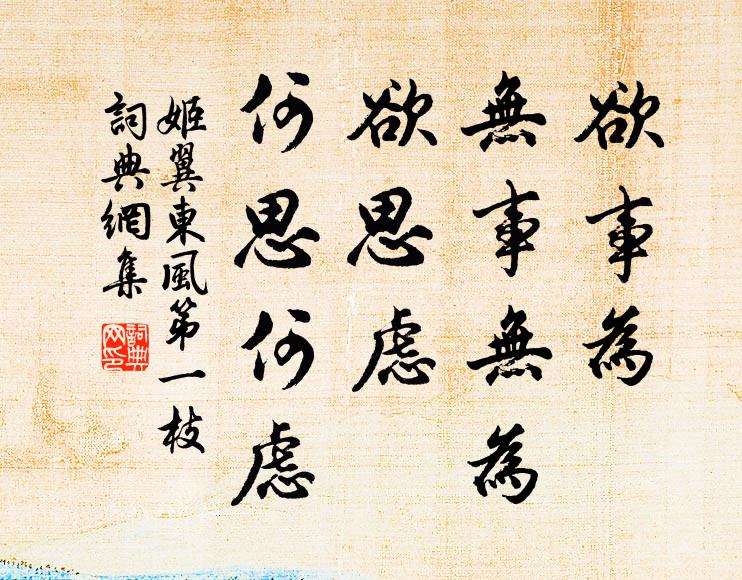 欲事為
無事無為
欲思慮
何思何慮
姬翼東風第一枝
詞典網集
詞典网印